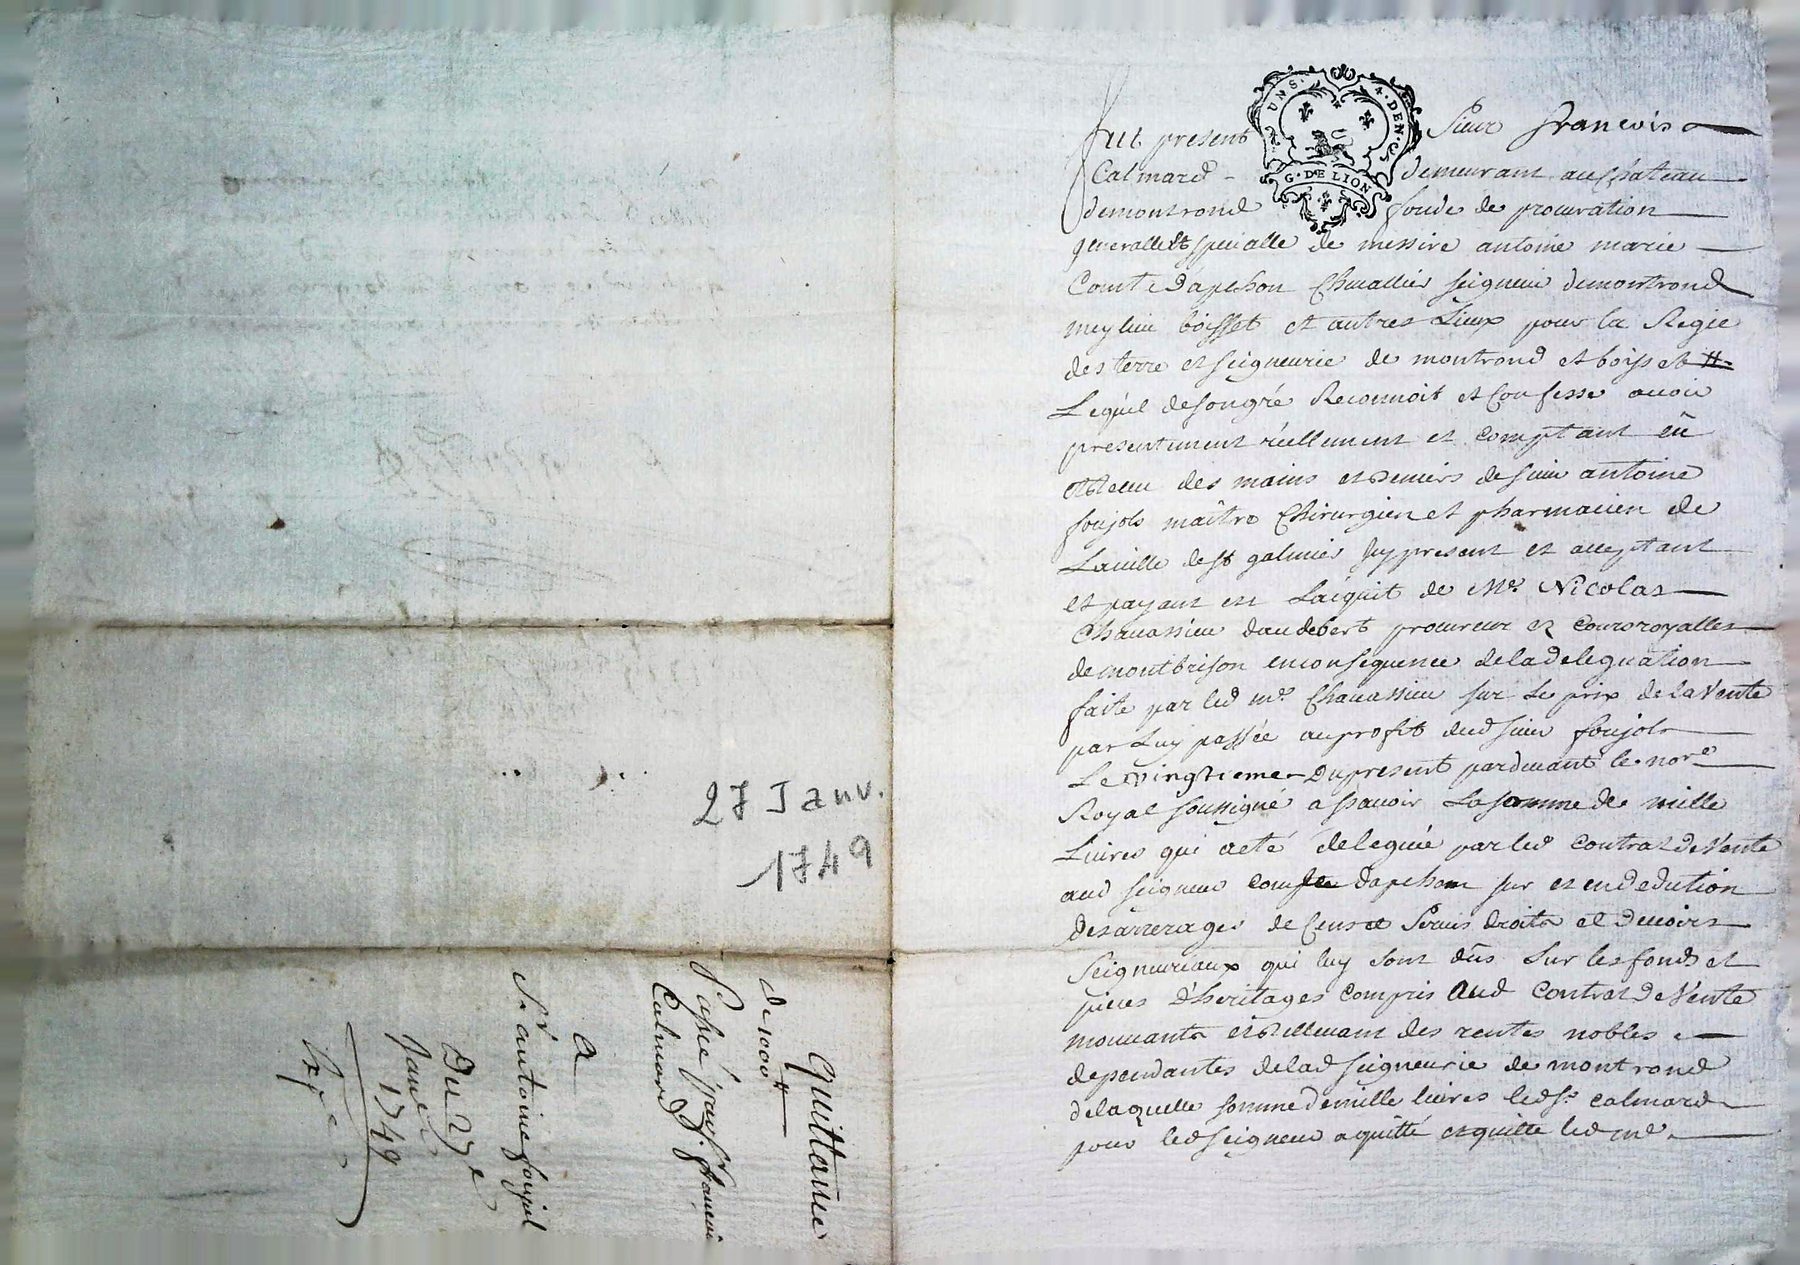 27 Janv.
1749
Quittance
de 1000ᵗᵗ
Passé par Sʳ francois
Calmard
a
Sʳ antoine foujol
Du 27e
Janer
1749
UNS. 4. DEN.
G. DE LION
fut present Sieur francois
Calmard - demeurant au chateau
demontrond fondé de procuration
generalle et specialle de messire antoine marie
Comte Dapchon Chevallier seigneur demontrond
meylieu boisset et autres Lieux pour la Regie
des terre et seigneurie de montrond et boisset
Lequel desongré Reconnoit et Confesse avoir
presentement réellement et comptant eü
et Receu des mains et Deniers de sieur antoine
foujols maître Chirurgien et pharmacien de
Laville de st galmier icy present et acceptant
et payant en Laiquit de Me. Nicolas
Chavassieu daudebert procureur ez Coursroyalles
de montbrison enconsequence deladelegation
faite par led me. Chavassieu sur Le prix de la Vente
par Luy passée auprofit dud sieur foujols
Le vingtieme Dupresent pardevant le nore.
Royal soussigné a sçavoir La somme de mille
Livres qui aeté deleguée par led contrat de Vente
aud seigneur comte Dapchon sur et endedution
desarrerages de Cens et Servis droits et Devoirs
Seigneuriaux qui luy sont dûs sur les fonds et
pieces D'heritages compris Aud Contrat de Vente
mouvants et Rellevant des rentes nobles
dependantes delad seigneurie de montrond
delaquelle somme demille livres led Sr. calmard
pour led seigneur a quitté et quitte led me.